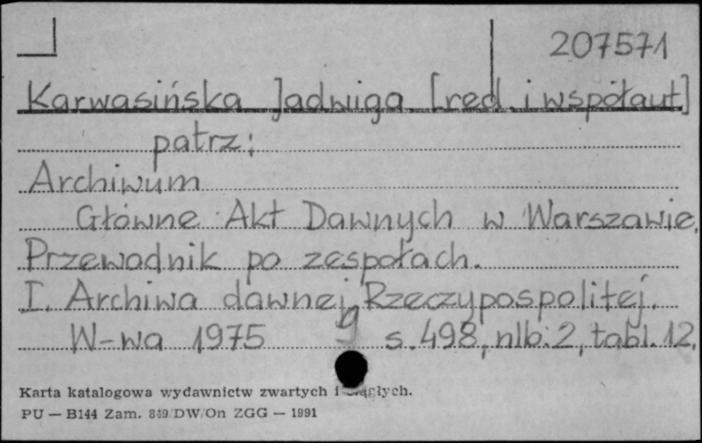 207571
Karwasińska Jadwiga [red. i współaut]
patrz:
Archiwum
Główne Akt Dawnych w Warszawie.
Przewodnik po zespołach.
I. Archiwa dawnej Rzeczypospolitej.
W-wa 1975 g s. 498, nlb. 2, tabl. 12.
Karta katalogowa wydawnictw zwartych i ciągłych.
PU — B144 Zam. 849/DW/On ZGG — 1991